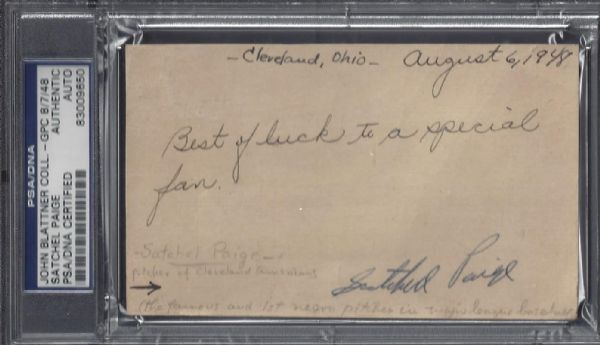 PSA/DNA
JOHN BLATTNER COLL. - GPC 8/7/48
SATCHEL PAIGE AUTHENTIC
PSA/DNA CERTIFIED AUTO
83009650
- Cleveland, Ohio - August 6, 1948
Best of luck to a special
fan.
- Satchel Paige -
pitcher of Cleveland
Satchel Paige
(the famous and 1st negro pitcher in major league baseball